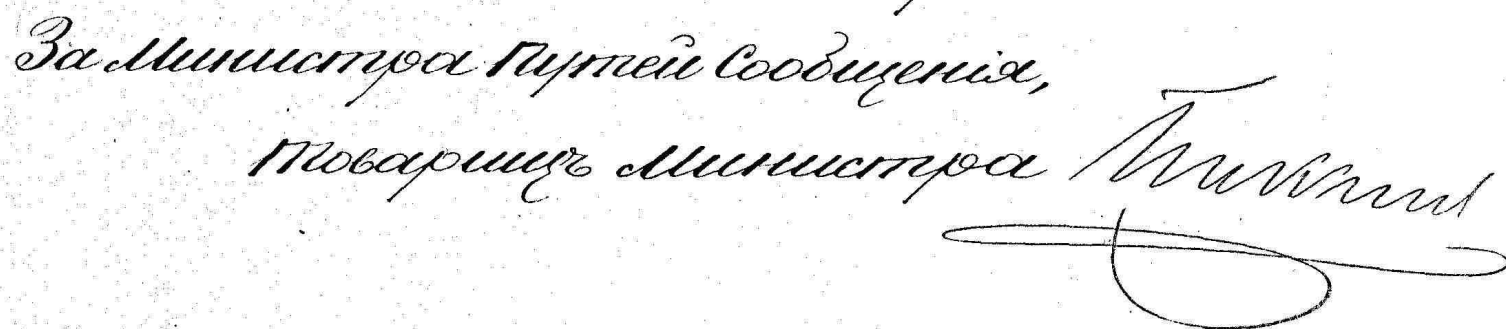 За Министра Путей Сообщенія,
Товарищъ Министра